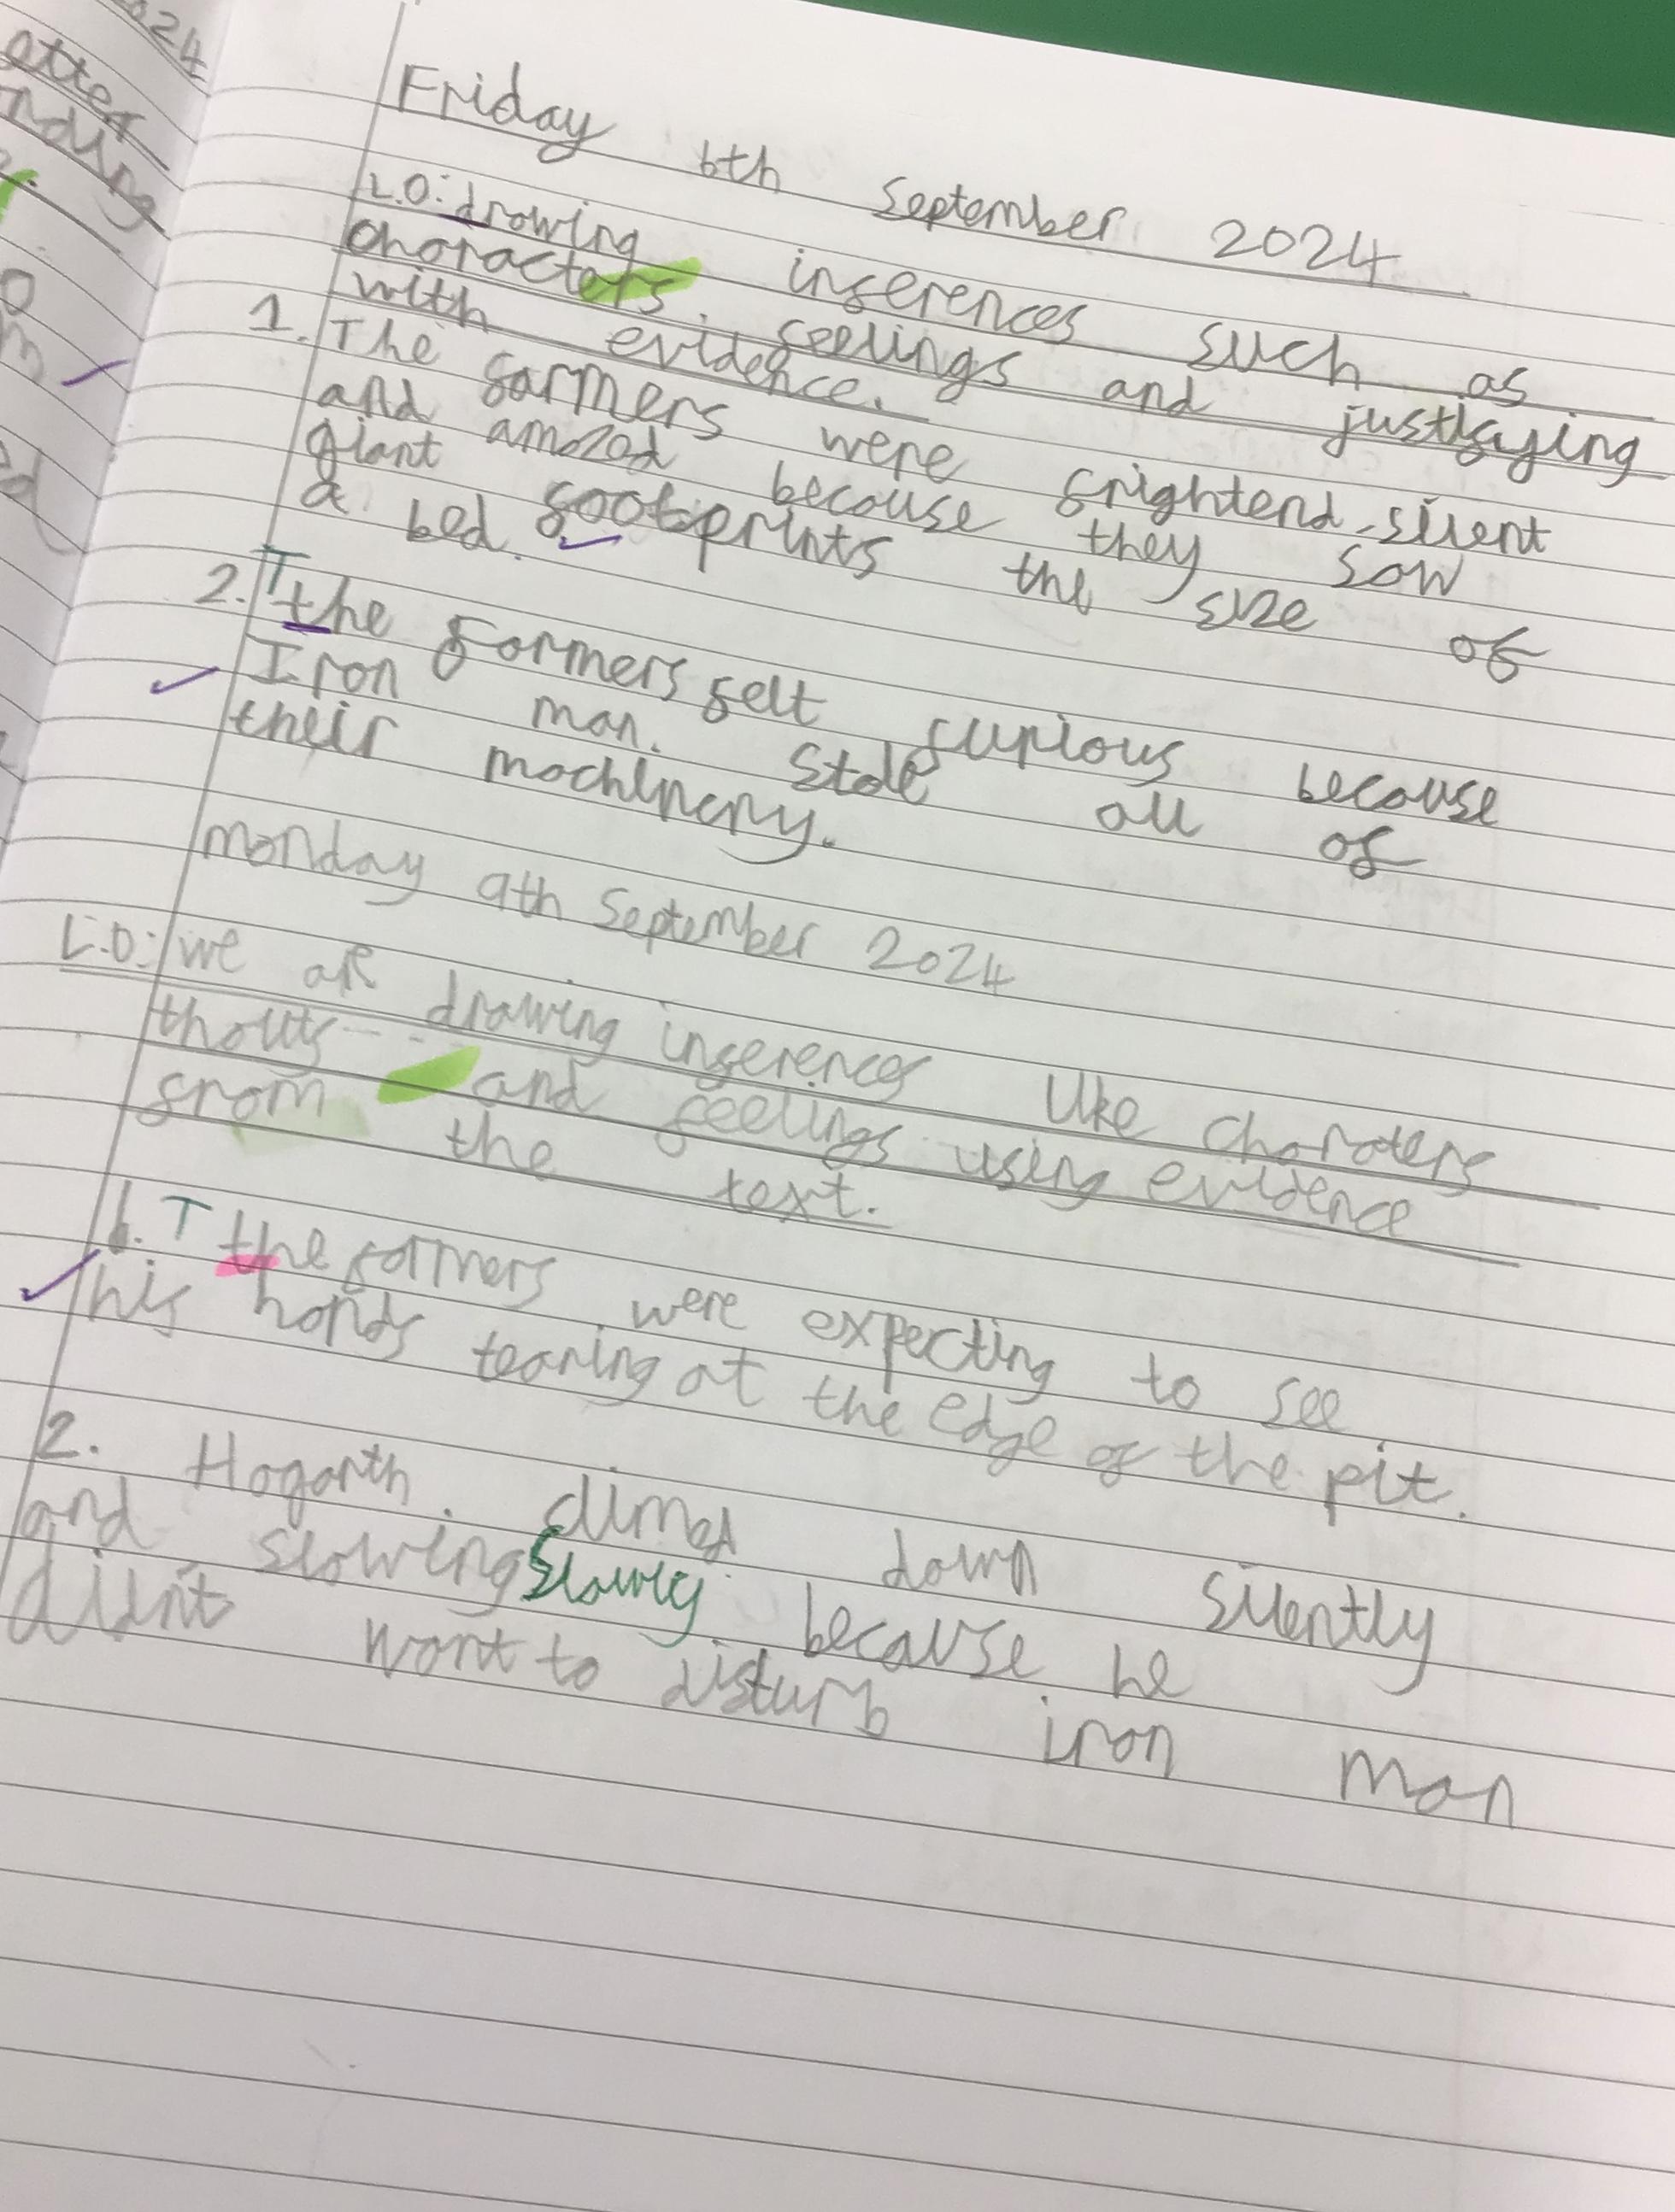 024
etter
nding
Friday 6th September 2024
L.O: drawing inferences such as
characters feelings and justifying
with evidence.
1. The farmers were frightend, silent
and amazed because they saw
giant footprints the size of
a bed.
2. T the farmers felt furious because
Iron man. stole all of
their machinery.
monday 9th September 2024
L.O: we are drawing inferences like charaters
thouts and feelings using evidence
from the text.
1. T the farmers were expecting to see
his hands tearing at the edge of the pit.
2. Hogarth climed down silently
and slowing slowly because he
didn't want to disturb iron man